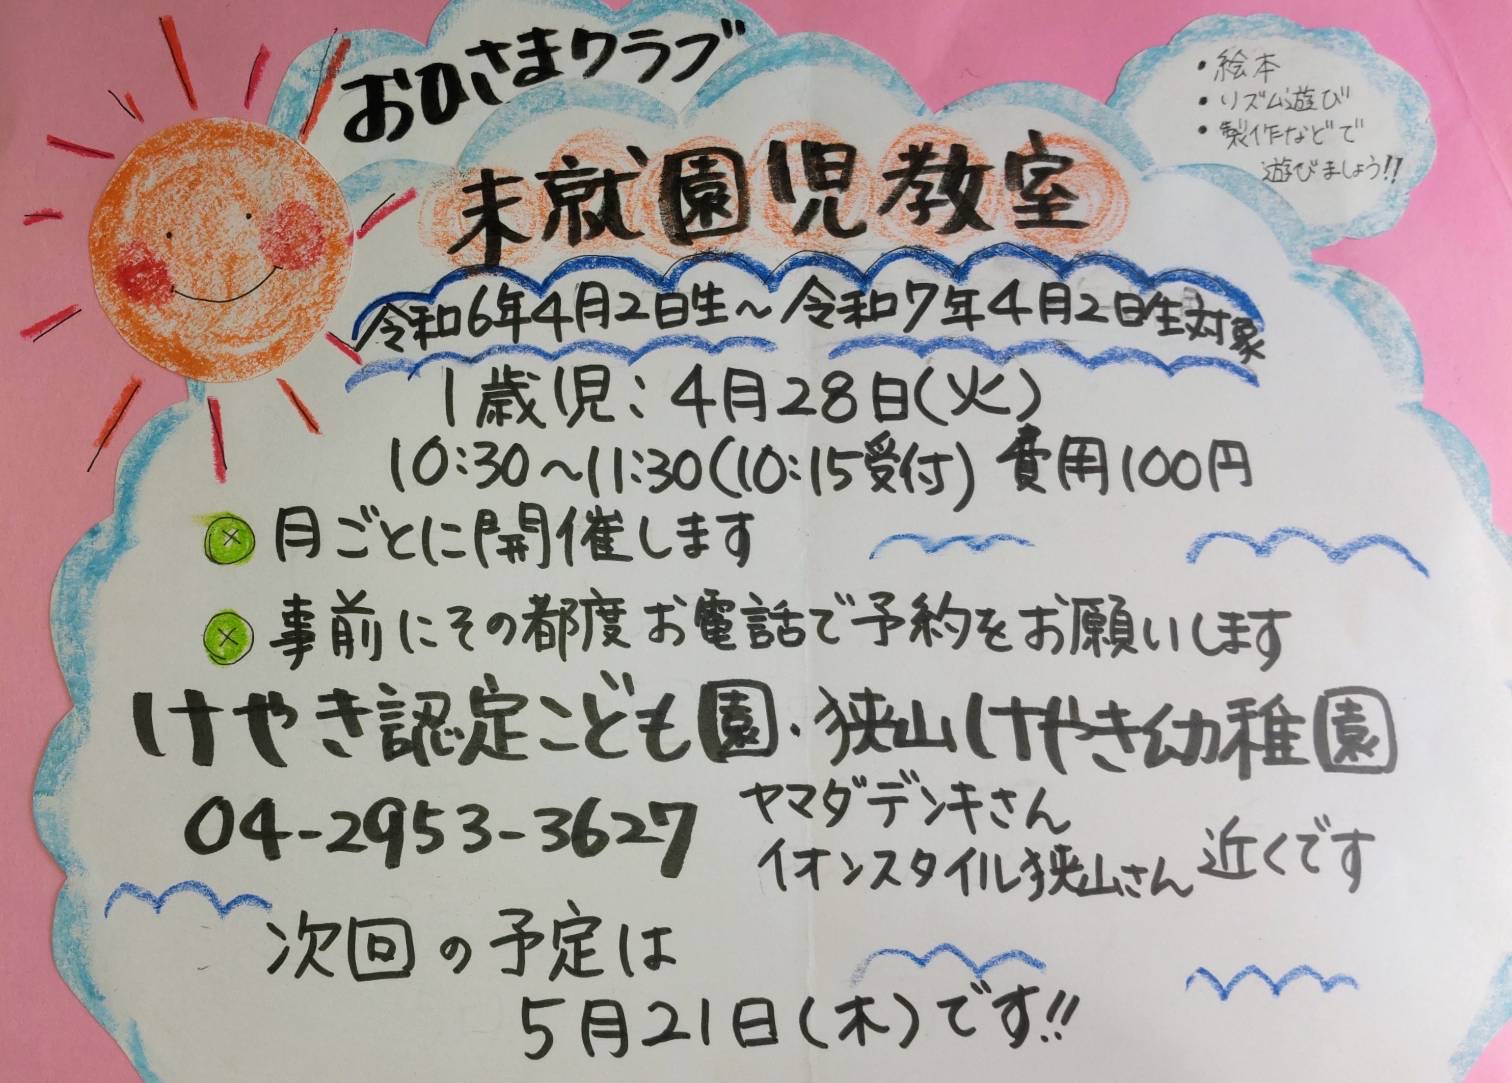 おひさまクラブ
・絵本
・リズム遊び
・製作などで
遊びましょう!!
未就園児教室
令和6年4月2日生～令和7年4月2日生対象
1歳児:4月28日(火)
10:30～11:30(10:15受付) 費用100円
月ごとに開催します
事前にその都度お電話で予約をお願いします
けやき認定こども園・狭山けやき幼稚園
04-2953-3627
ヤマダデンキさん
イオンスタイル狭山さん 近くです
次回の予定は
5月21日(木)です!!